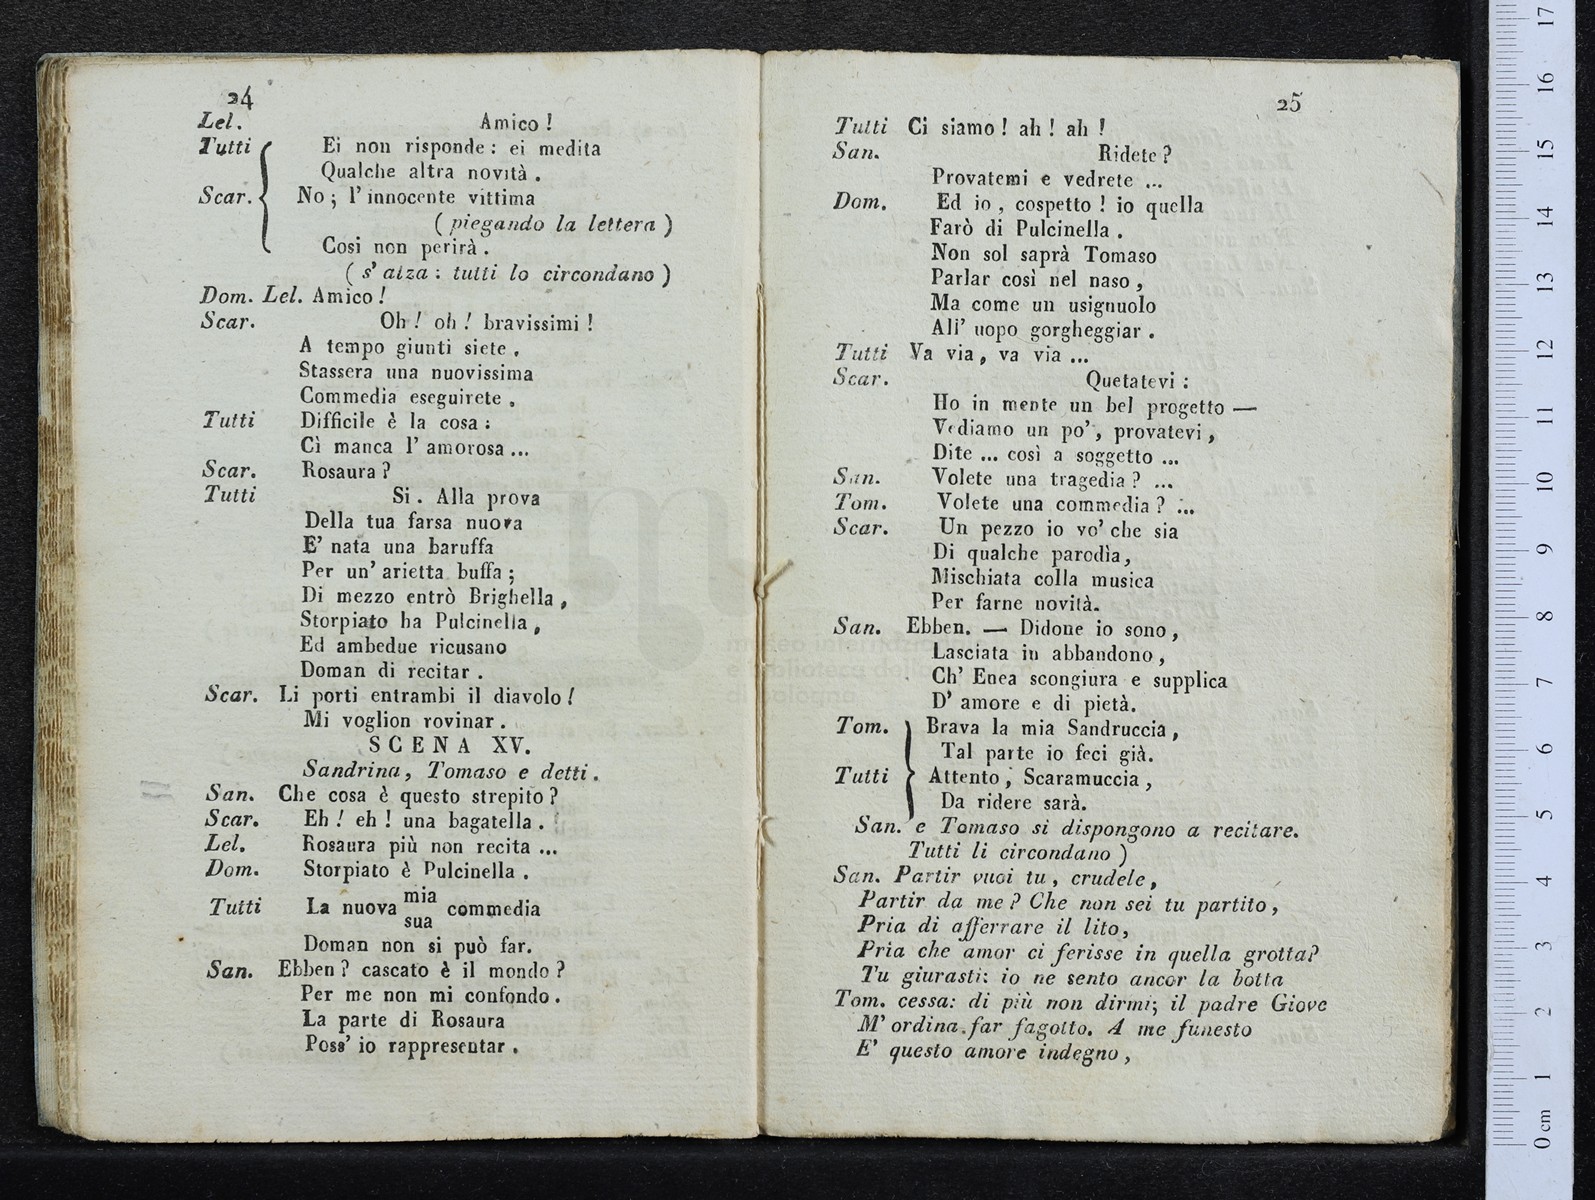 24
Lel. Amico !
Tutti Ei non risponde : ei medita
Qualche altra novità .
Scar. No ; l' innocente vittima
( piegando la lettera )
Così non perirà .
( s' alza : tutti lo circondano )
Dom. Lel. Amico !
Scar. Oh ! oh ! bravissimi !
A tempo giunti siete .
Stassera una nuovissima
Commedia eseguirete .
Tutti Difficile è la cosa :
Cì manca l' amorosa ...
Scar. Rosaura ?
Tutti Si . Alla prova
Della tua farsa nuova
E' nata una baruffa
Per un' arietta buffa ;
Di mezzo entrò Brighella ,
Storpiato ha Pulcinella ,
Ed ambedue ricusano
Doman di recitar .
Scar. Li porti entrambi il diavolo !
Mi voglion rovinar .
SCENA XV.
Sandrina, Tomaso e detti .
San. Che cosa è questo strepito ?
Scar. Eh ! eh ! una bagatella .
Lel. Rosaura più non recita ...
Dom. Storpiato è Pulcinella .
mia
Tutti La nuova commedia
sua
Doman non si può far.
San. Ebben ? cascato è il mondo ?
Per me non mi confondo .
La parte di Rosaura
Poss' io rappresentar .
25
Tutti Ci siamo ! ah ! ah !
San. Ridete ?
Provatemi e vedrete ...
Dom. Ed io , cospetto ! io quella
Farò di Pulcinella .
Non sol saprà Tomaso
Parlar così nel naso ,
Ma come un usignuolo
All' uopo gorgheggiar .
Tutti Va via , va via ...
Scar. Quetatevi :
Ho in mente un bel progetto —
Vediamo un po' , provatevi ,
Dite ... così a soggetto ...
San. Volete una tragedia ? ...
Tom. Volete una commedia ? ...
Scar. Un pezzo io vo' che sia
Di qualche parodìa,
Mischiata colla musica
Per farne novità.
San. Ebben. — Didone io sono ,
Lasciata in abbandono ,
Ch' Enea scongiura e supplica
D' amore e di pietà.
Tom. Brava la mia Sandruccia ,
Tal parte io feci già.
Tutti Attento , Scaramuccia ,
Da ridere sarà.
San. e Tomaso si dispongono a recitare.
Tutti li circondano )
San. Partir vuoi tu , crudele ,
Partir da me ? Che non sei tu partito ,
Pria di afferrare il lito,
Pria che amor ci ferisse in quella grotta?
Tu giurasti: io ne sento ancor la botta
Tom. cessa: di più non dirmi; il padre Giove
M' ordina far fagotto. A me funesto
E' questo amore indegno ,
museo internazionale
e biblioteca della
di bologna
0 cm 1 2 3 4 5 6 7 8 9 10 11 12 13 14 15 16 17